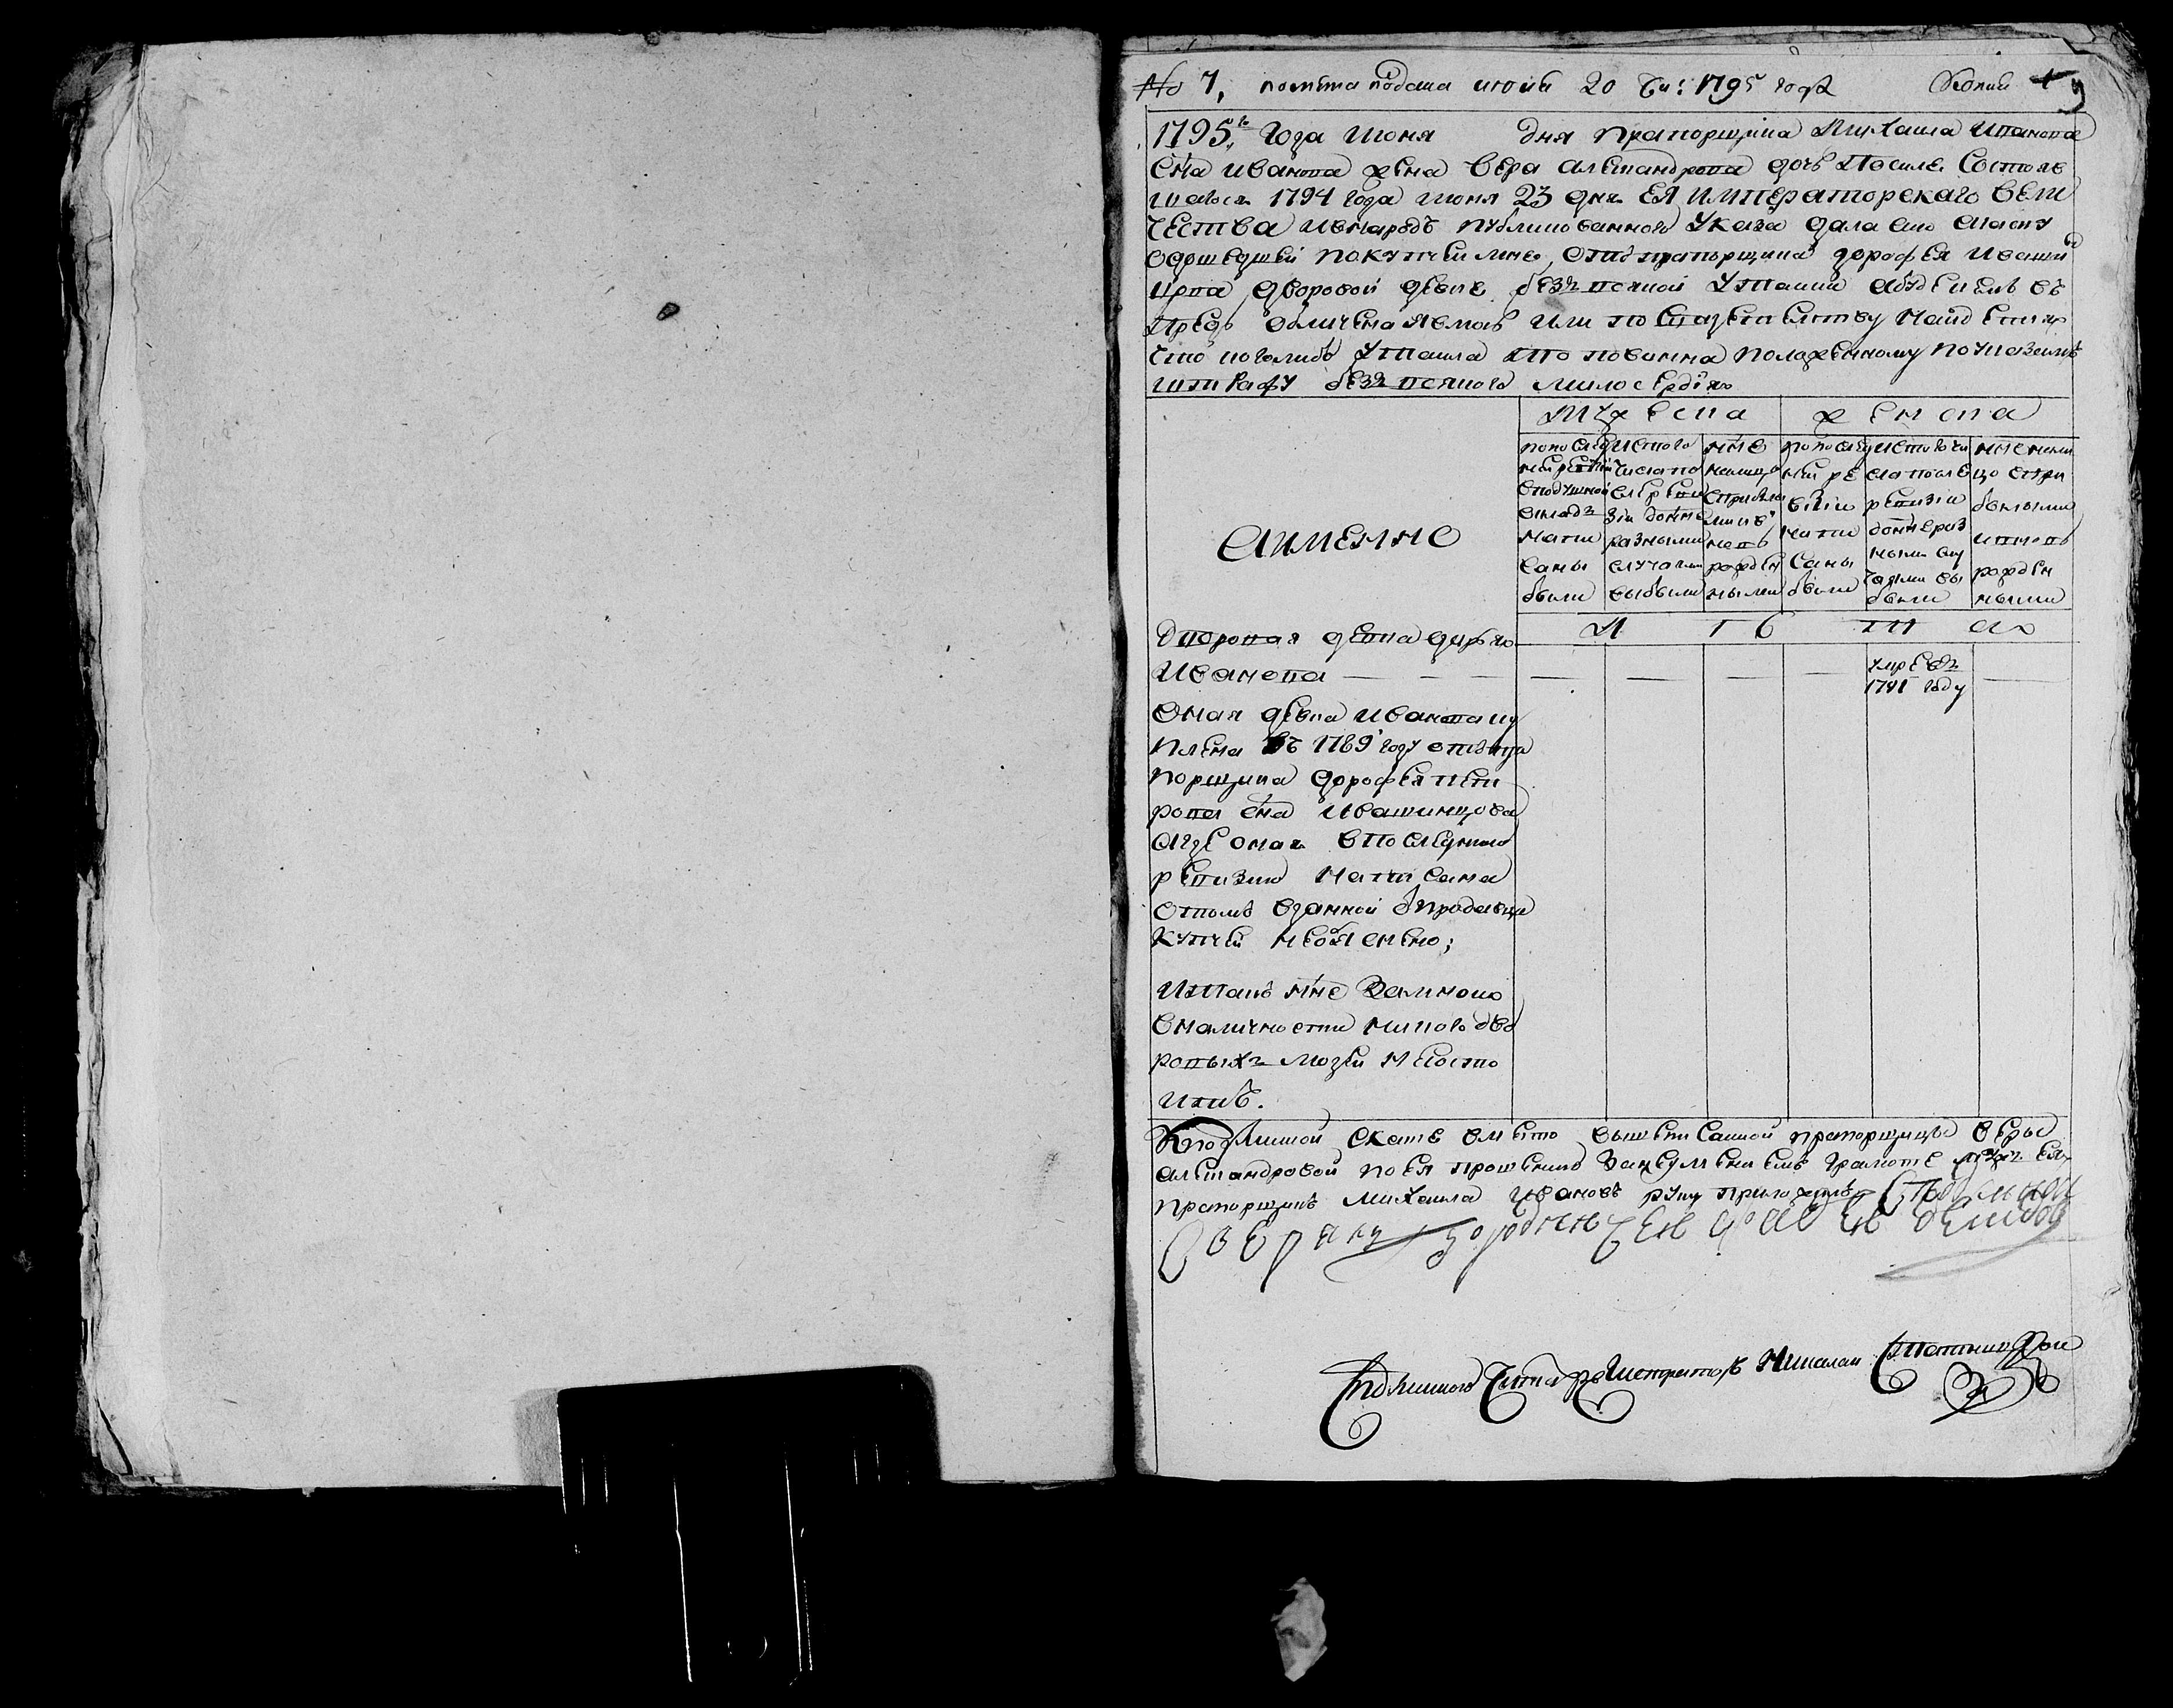 № 7, помѣта подана июня 20 дн: 1795 года Копия
1795го Года июня дня Прапорщика Михаила иванова
сна иванова жена Вера александрова дочь посиле состояв
шагося 1794 года июня 23 дня ЕЯ ИМПЕРАТОРСКАГО ВЕЛИ
ЧЕСТВА ивнародъ публикованнаго Указа дала сию скаску
вдошедшей покупчей мне, отпрапорщика дорофея Иваши
нцова дворовой девке безвсякой Утайки абудекемъ въ
предь обличена явлюсь или по свидетелству найдетца
что коголибо Утаила то повинна положенному поуказамъ
штрафу безвсякого милосердия
Мужеска женска
АИМЕННО
попоследней ревизии вподушной оклад написаны были
изтого числа после ревизии доныне разными случаями выбыли
ныне налицо сприбылыми ивновь рожденными
попоследней ревизии написаны были
изтого числа после ревизии доныне разными случаями выбыли
ныне налицо сприбылыми ивновь рожденными
дворовая девка дарья
л т
Иванова
умре въ
1791 году
Оная девка иванова ку
плена въ 1789 году отпра
порщика дорофея пет
рова сна Ивашинцова
агде оная впоследнюю
ревизию написана
отомъ вданной отпродавца
купчей необяснено;
Итакъ мне заимною
вналичности никого дво
ровыхъ людей несосто
итъ.
Кподлинной скаске вместо вышеписанной прапорщицы веры
александровой поея прошению занеумениемъ грамоте мужъ ея
прапорщикъ Михаила Ивановъ руку приложилъ Сподлинной
Сподлинною читал регистраторъ Николаи